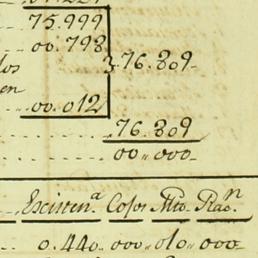 75.999
00.798
los 76.809
en
00.012
76.809
00..000
Existen.ª Cosos Mto. Raon
0.440 000..010..000